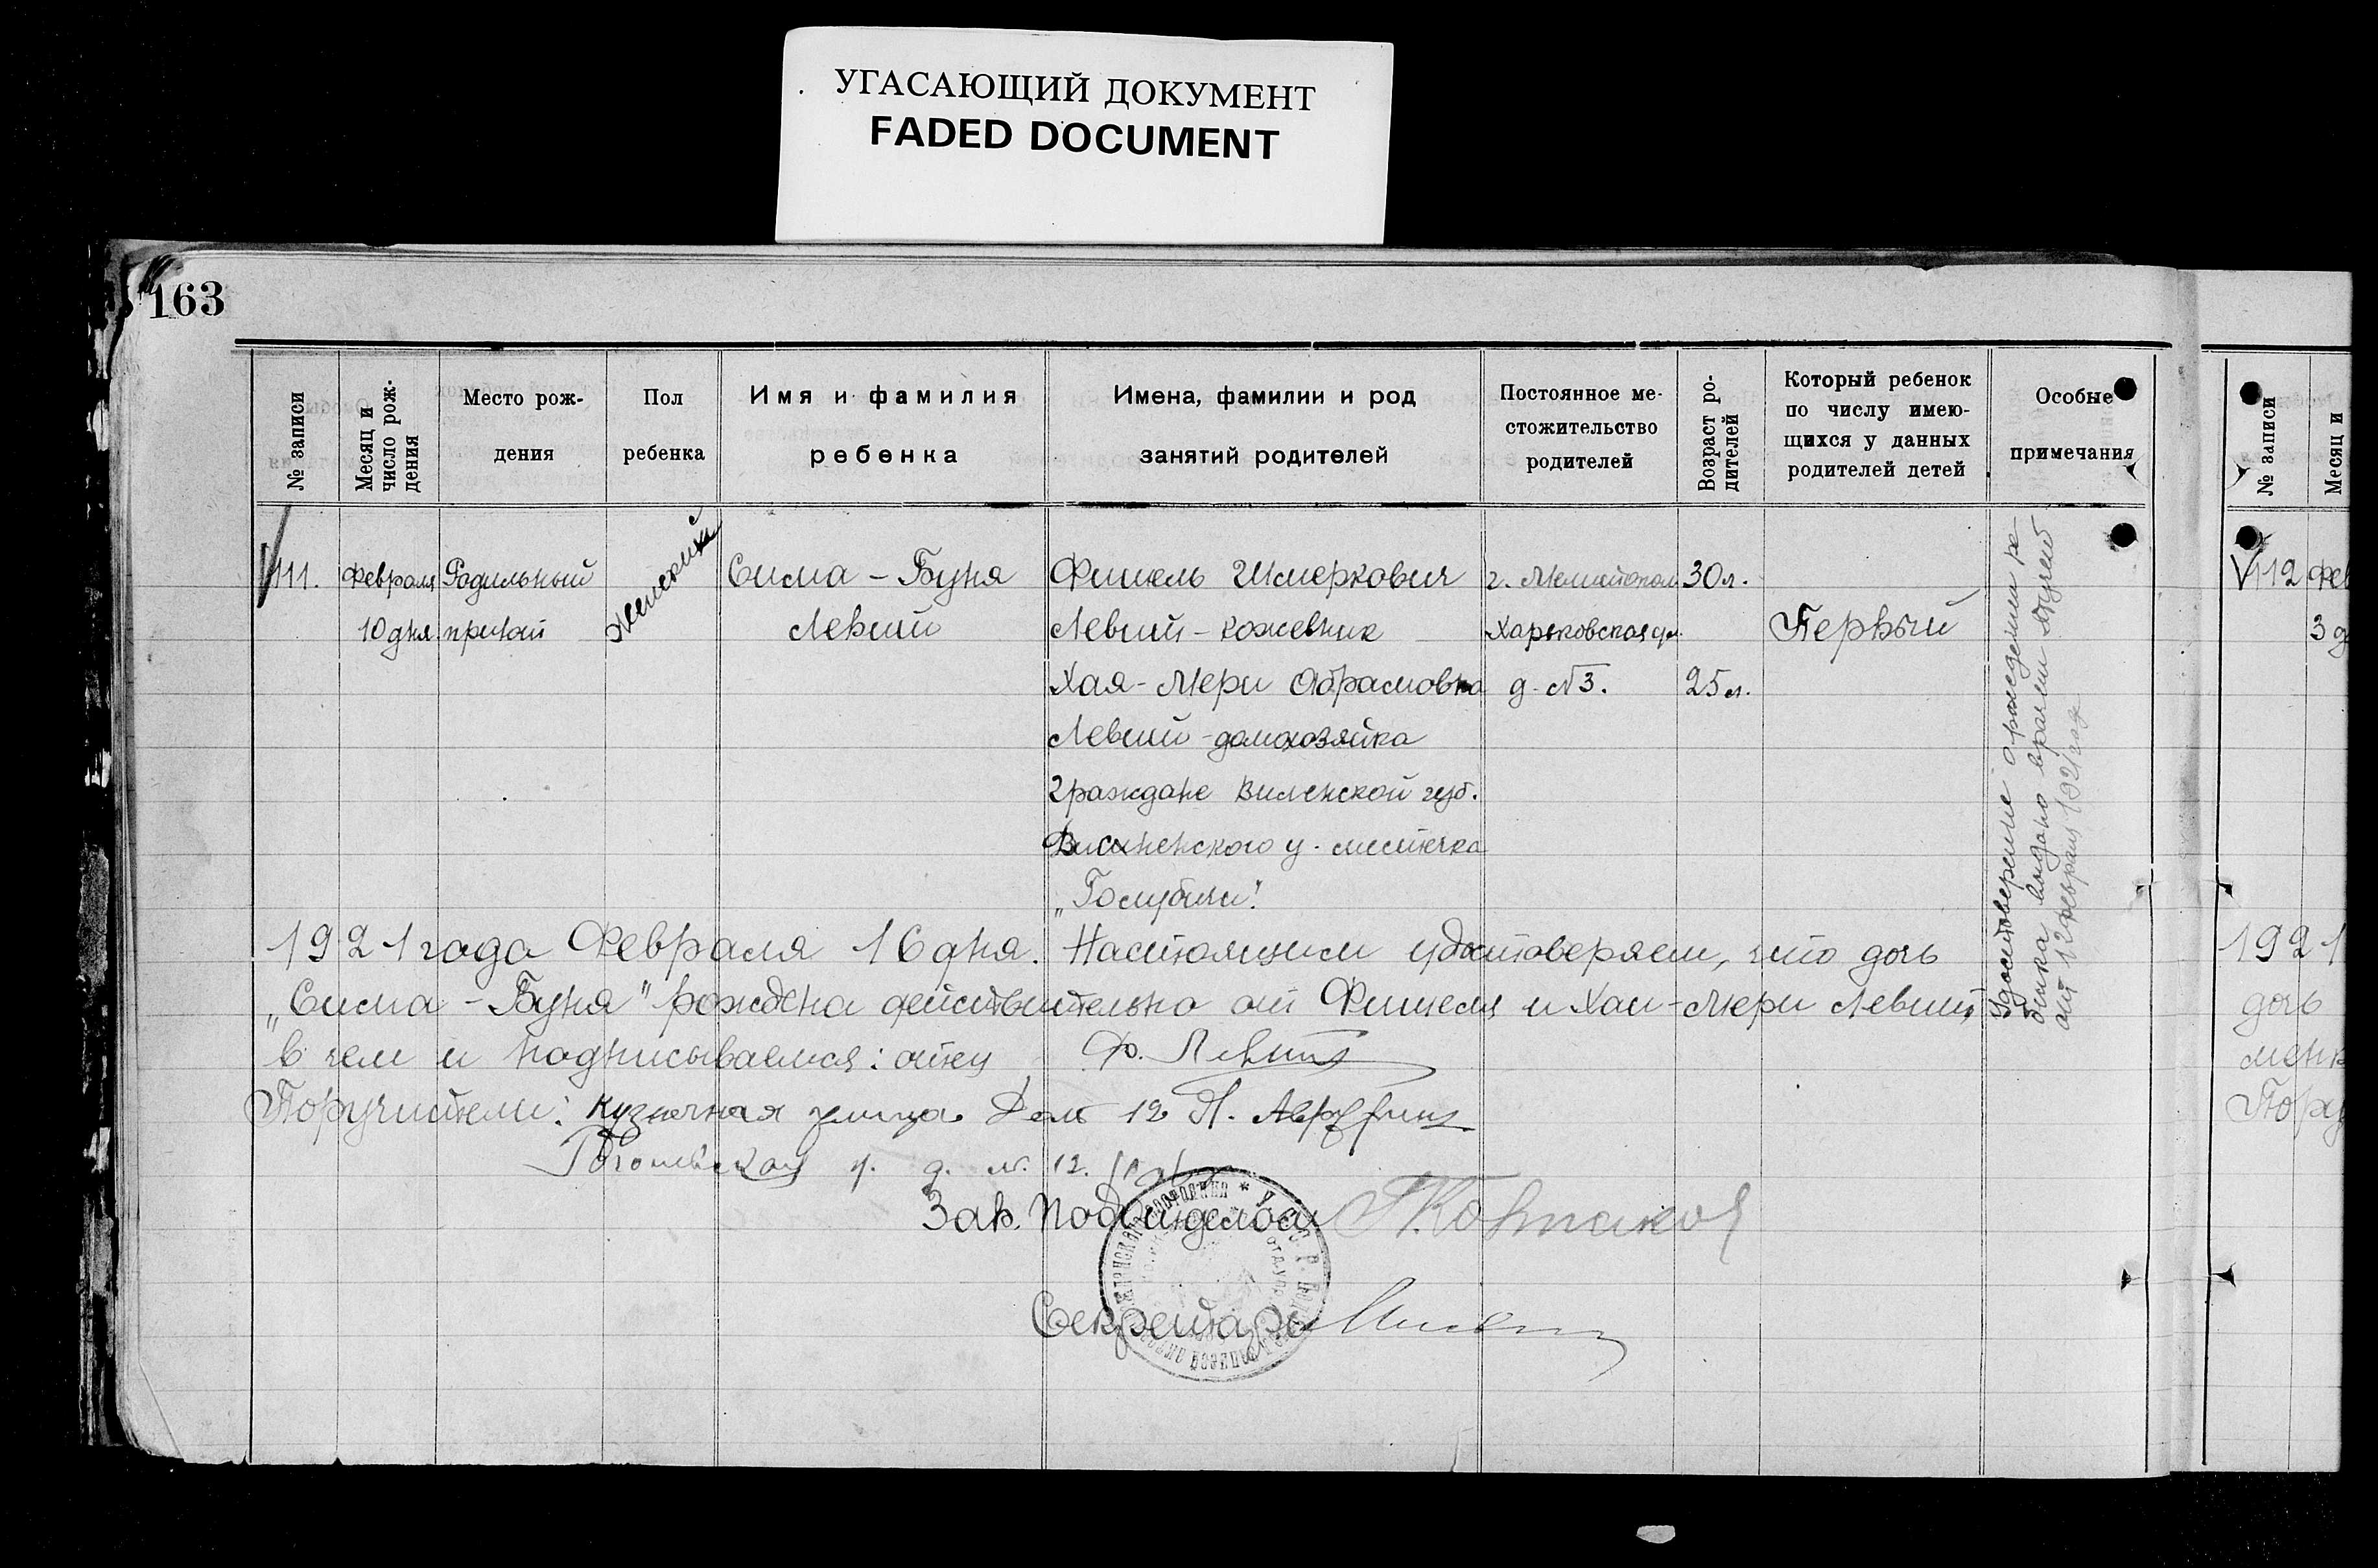 УГАСАЮЩИЙ ДОКУМЕНТ
FADED DOCUMENT
163
№ записи
Месяц и число рож-дения
Место рож-дения
Пол ребенка
Имя и фамилия ребенка
Имена, фамилии и род занятий родителей
Постоянное ме-стожительство родителей
Возраст ро-дителей
Который ребенок по числу имею-щихся у данных родителей детей
Особые примечания
№ записи
Месяц и
111. Февраля Родильный женский Сима - Буня Фишель Шмеркович г. Мелитополь 30 л.
10 дня. приют Левит Левит - кожевник Харьковская ул. Первый
Хая - Мери Абрамовна д. №3. 25 л.
Левит - домохозяйка
граждане Виленской губ.
Дисненского у. местечка
„Голубичи".
Удостоверение о рождении ре-
бенка выдано врачем
от 12 февраля 1921 года
1921 года Февраля 16 дня. Настоящим удостоверяем, что дочь
„Сима - Буня" рождена действительно от Фишеля и Хаи - Мери Левит,
в чем и подписываемся: отец Ф. Левит
Поручители: Кузнечная улица Дом 12
Гоголевская у. д. №. 12.
Зав. Подотделом
Секретарь
112 Фев
3 д
1921
дочь
Пору